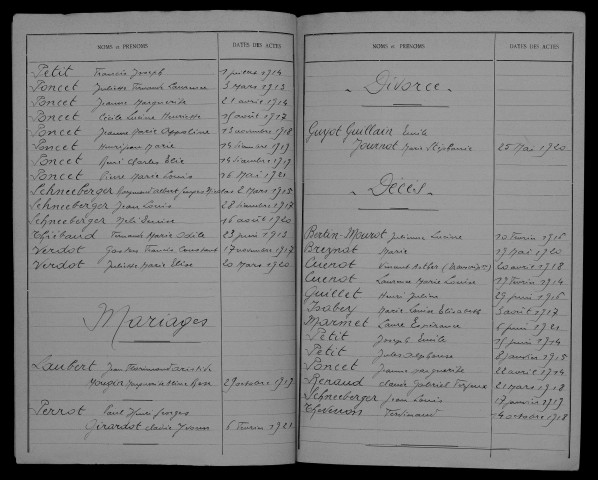 NOMS et PRÉNOMS DATES DES ACTES
Petit Francis Joseph 1 juillet 1914
Poncet Juliette Fernande Laurence 3 Mars 1913
Poncet Jeanne Marguerite 21 avril 1914
Poncet Cécile Lucine Henriette 15 août 1917
Poncet Jeanne Marie Appoline 13 novembre 1918
Poncet Marie 14 décembre 1919
Poncet Henri Charles Elie 14 décembre 1919
Poncet Pierre Marie Louis 16 Mai 1921
Schneeberger Raymond Albert 2 Mars 1915
Schneeberger Jean Louis 28 décembre 1917
Schneeberger Denise 16 août 1920
Thiébaud Fernand Marie Odile 23 juin 1913
Verdot Gaston Francis Constant 17 novembre 1917
Verdot Juliette Marie Elise 20 Mars 1920
Mariages
Laubert Jean
Mougin 29 octobre 1919
Perrot Paul Henri Georges
Girardot Yvonne 5 février 1921
NOMS et PRÉNOMS DATES DES ACTES
- Divorce -
Guyot Guillain Emile
Journot Marie Stéphanie 25 Mai 1920
- Décès -
Bertin-Mourot Julienne Lucine 10 février 1916
Breynot Marie 17 Mai 1920
Cuenot Arthur (Transcript°) 20 avril 1918
Cuenot Laurence Marie Louise 19 février 1914
Guillet Henri Julien 29 juin 1916
Isabey Marie Louise Elisabeth 3 août 1917
Marmet Laure Espérance 6 juin 1921
Petit Joseph Emile 15 juin 1914
Petit Jules Alphonse 8 janvier 1915
Poncet Jeanne Marguerite 22 avril 1914
Renaud Gabriel 21 Mars 1918
Schneeberger Jean Louis 17 janvier 1919
Thevenon Ferdinand 14 octobre 1918